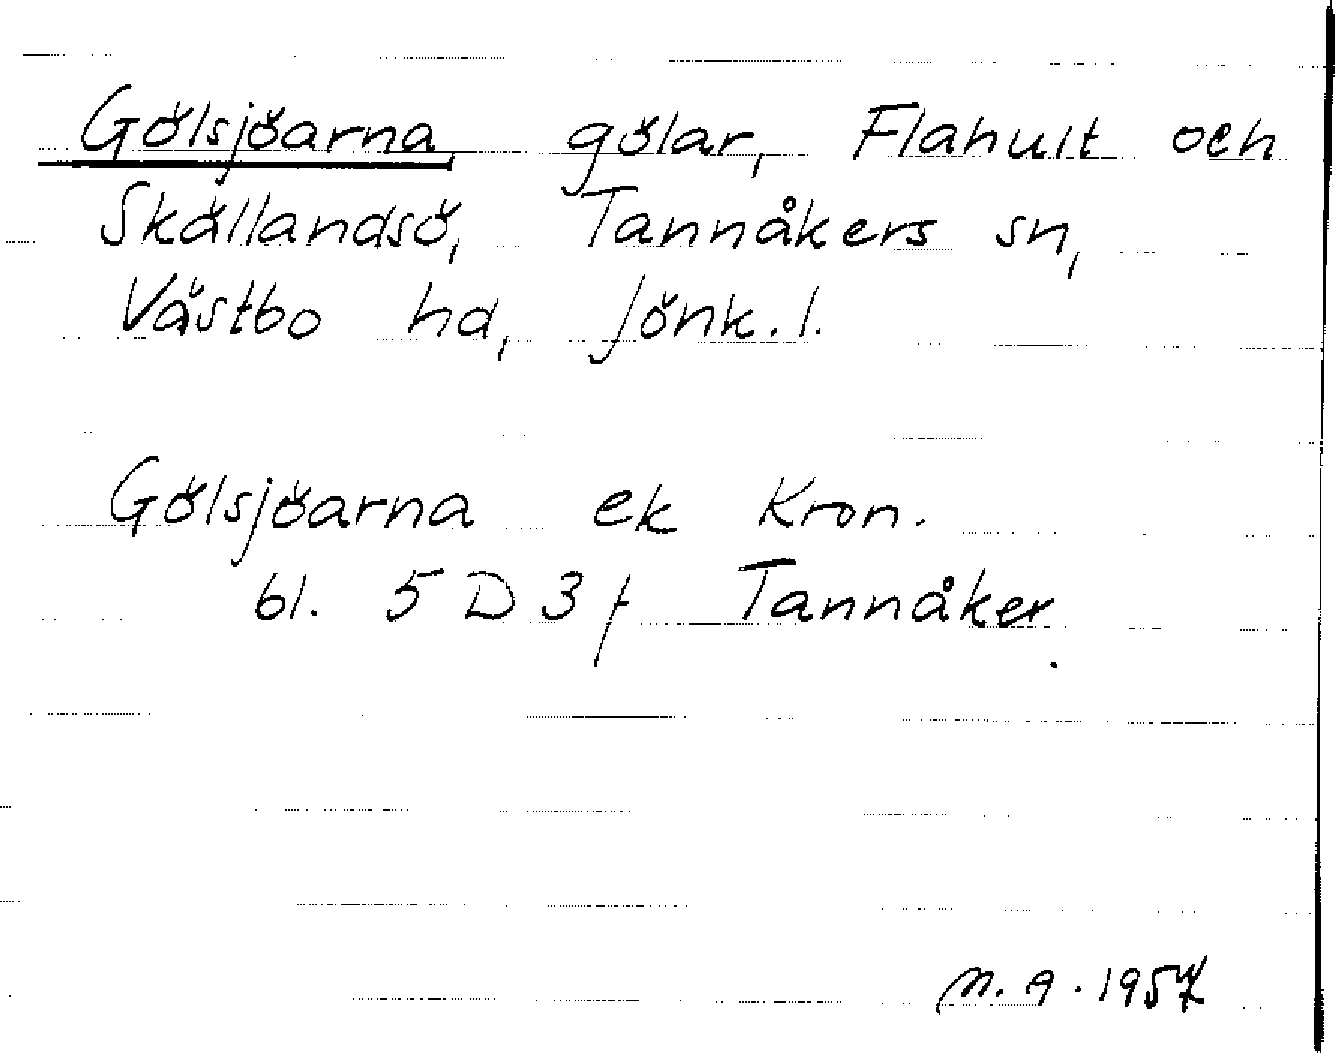 Gölsjöarna, gölar, Flahult och
Skällandsö, Tannåkers sn,
Västbo hd, Jönk. l.
Gölsjöarna ek Kron.
bl. 5 D 3 f Tannåker
M. A. 1957